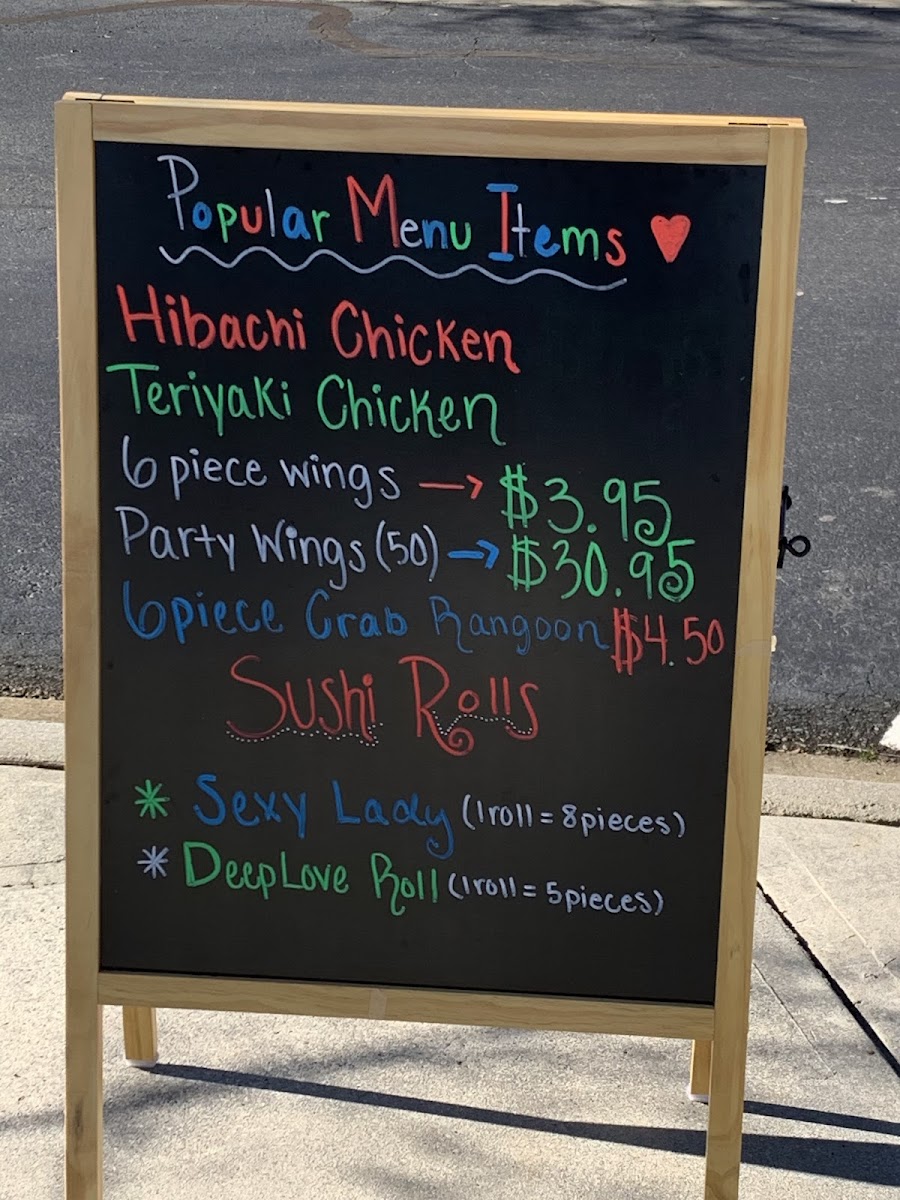 Popular Menu Items
Hibachi Chicken
Teriyaki Chicken
6 piece wings → $3.95
Party Wings (50) → $30.95
6 piece Crab Rangoon $4.50
Sushi Rolls
* Sexy Lady (1 roll = 8 pieces)
* DeepLove Roll (1 roll = 5 pieces)